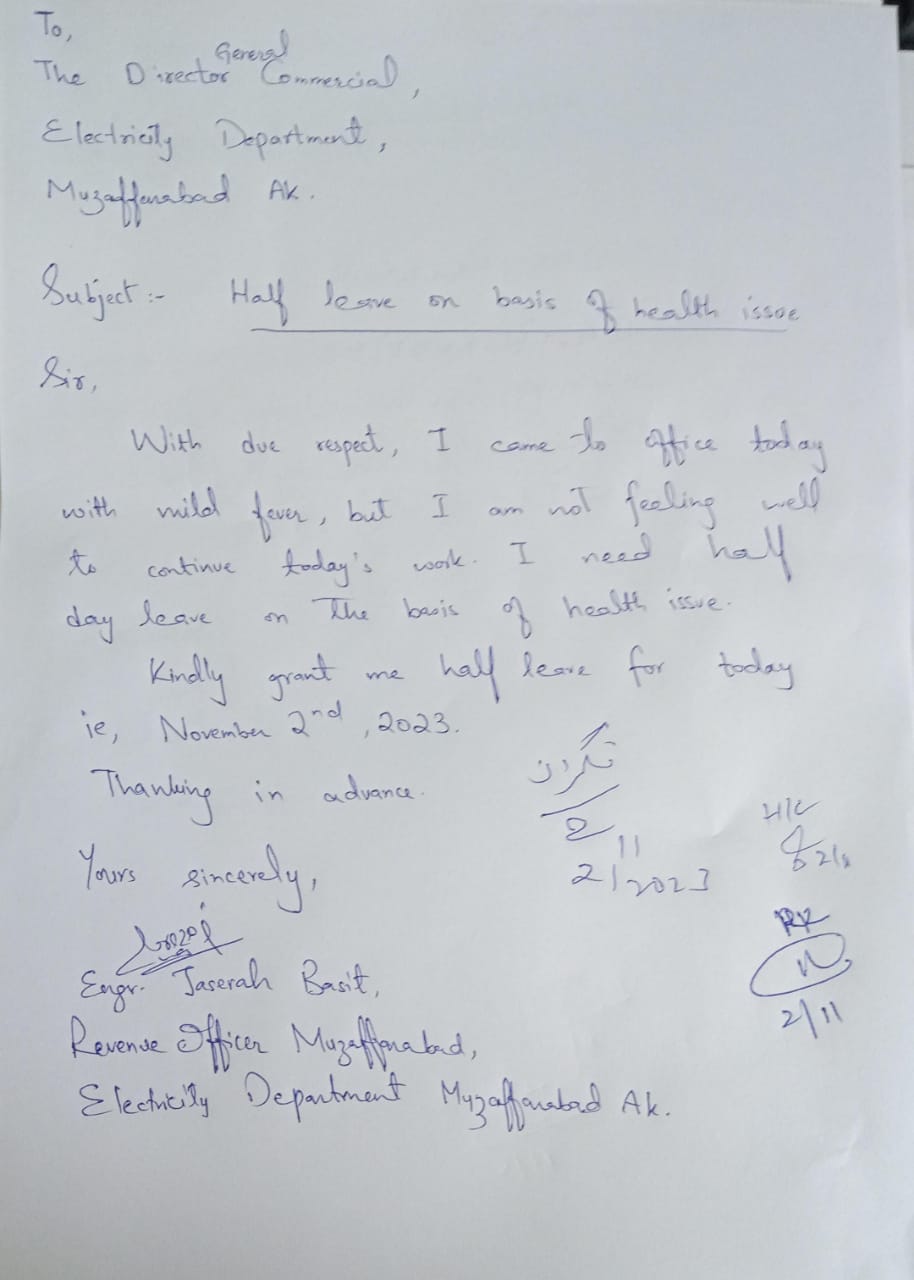 To,
The Director General Commercial,
Electricity Department,
Muzaffarabad Ak.
Subject :- Half leave on basis of health issue
Sir,
With due respect, I came to office today
with mild fever, but I am not feeling well
to continue today's work. I need half
day leave on the basis of health issue.
Kindly grant me half leave for today
ie, November 2nd, 2023.
Thanking in advance.
Yours sincerely,
Engr. Jaserah Basit,
Revenue Officer Muzaffarabad,
Electricity Department Muzaffarabad Ak.
نگران
2/11/2023
2/11